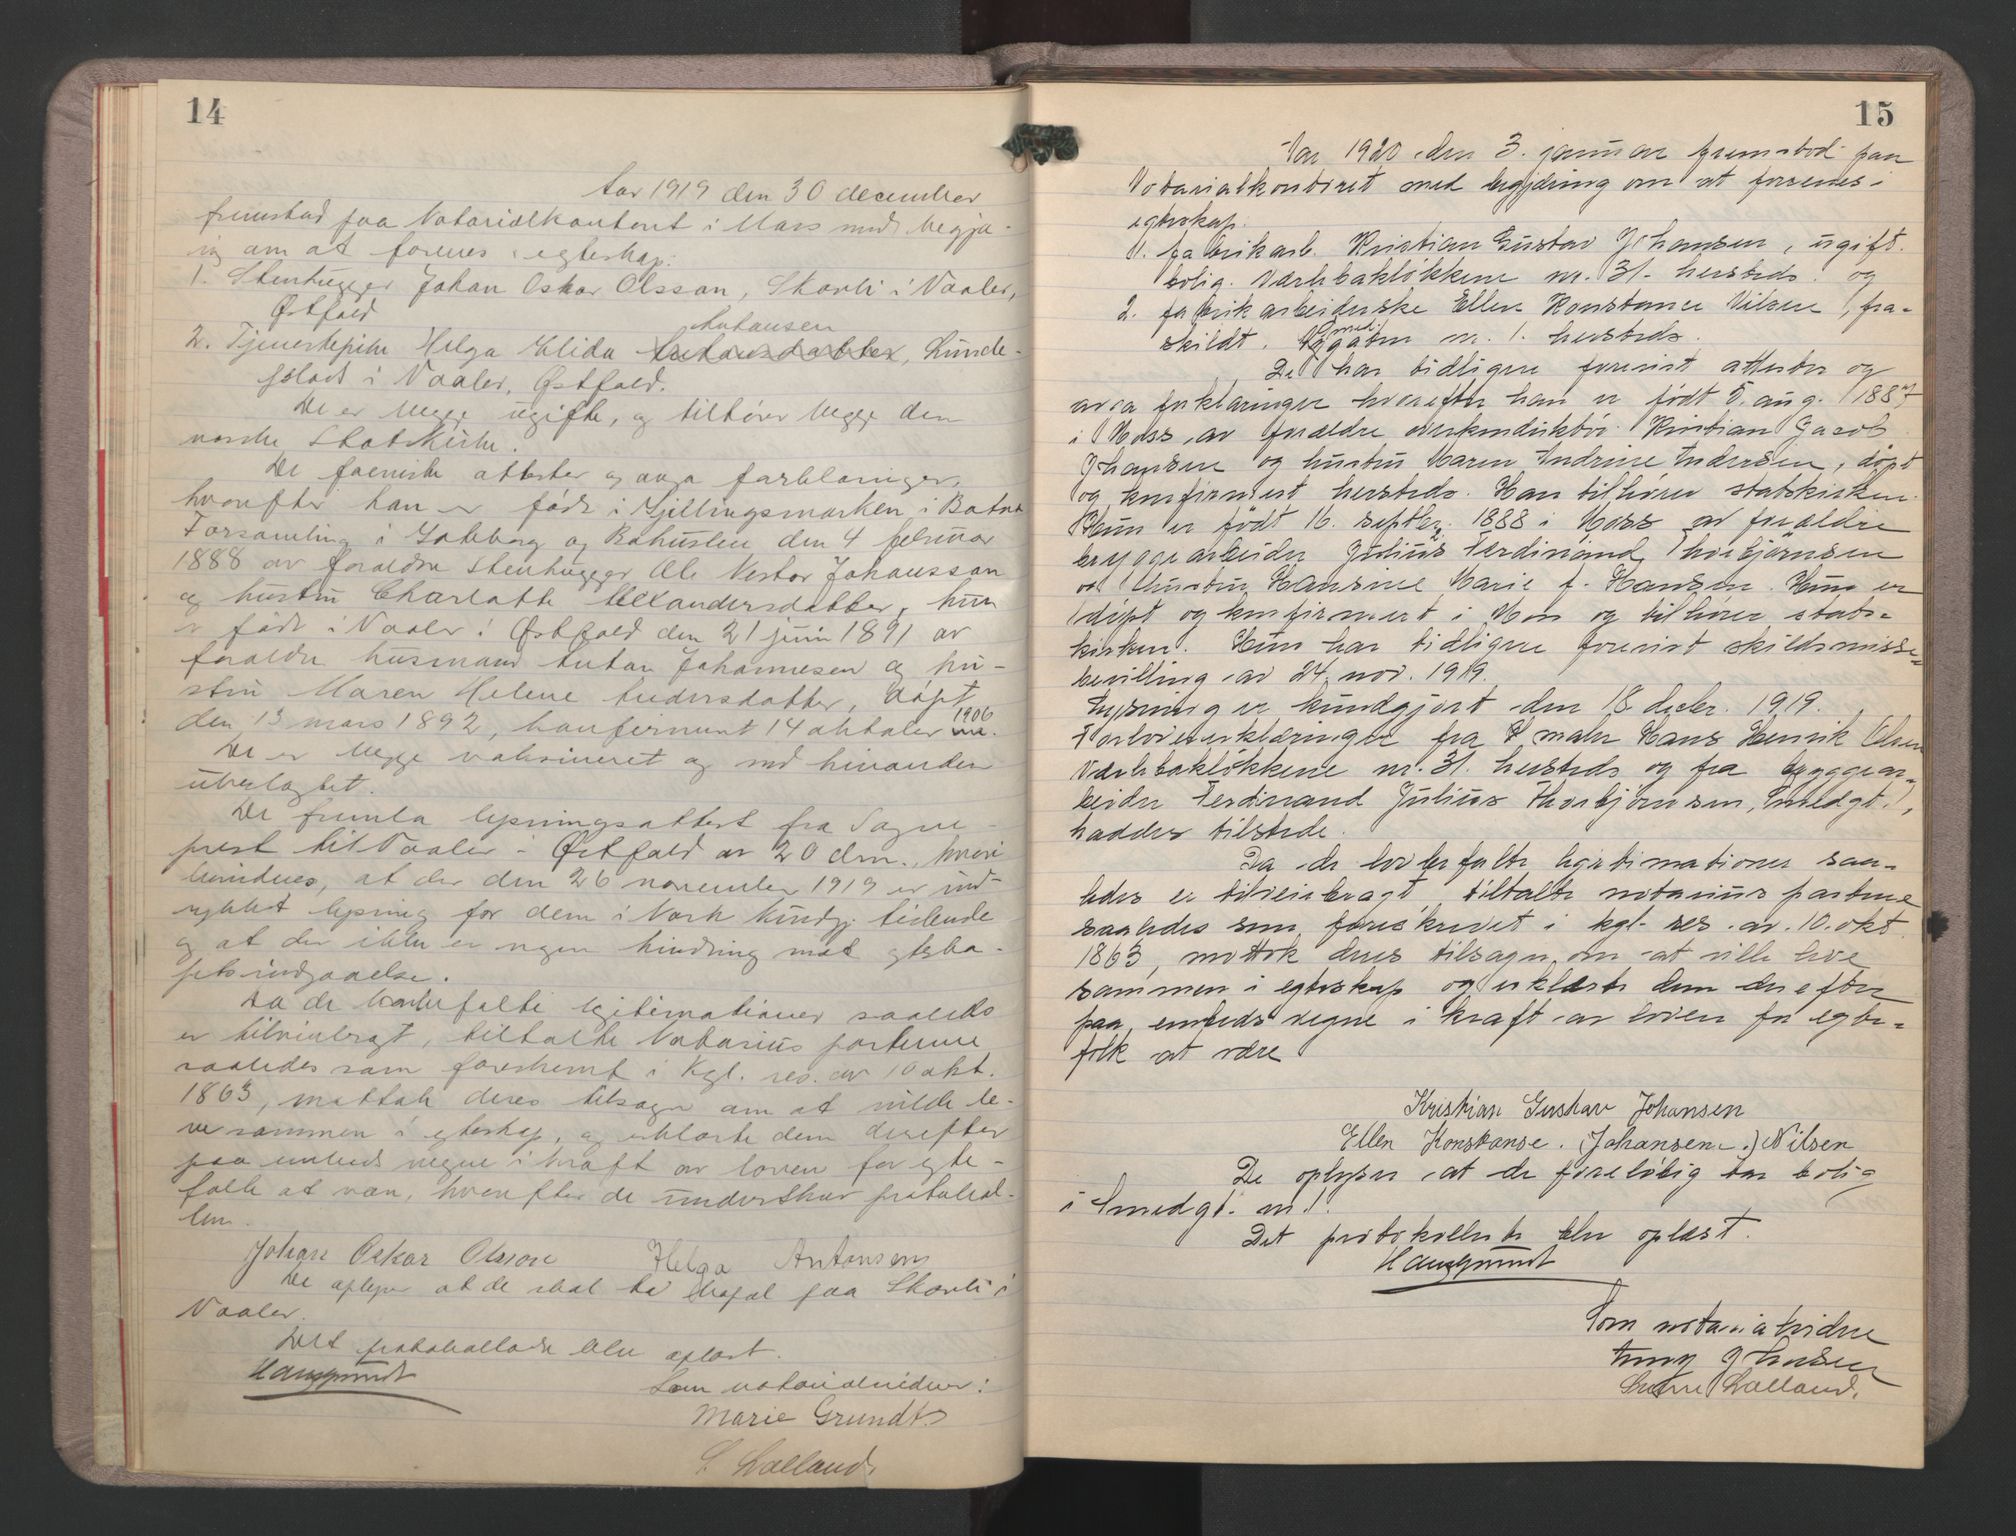 14
Aar 1919 den 30 december
fremstod paa Notarialkontoret i Moss med begjæ-
ing om at forenes i egteskap:
1. Stenhugger Johan Oskar Olsson, Skovli i Vaaler,
Østfold
2. Tjenestepike Helga Elida Antonsdatter, Lunde-
Antonsen
plads i Vaaler, Østfold.
De er begge ugifte, og tilhører begge den
norske Statskirke.
De foreviste attester og avga forklaringer,
hvorefter han er født i Gjellingsmarken i Botna
Forsamling i Gøteborg og Bohuslen den 4 februar
1888 av forældre stenhugger Ole Nestor Johansson
og hustru Charlotte Alexandersdatter, hun
er født i Vaaler i Østfold den 21 juni 1891 av
forældre husmand Anton Johannesen og hu-
stru Maren Helene Andersdatter, døpt
den 13 mars 1892, konfirmert 14 oktober 1906
De er begge vaksineret og ved hinanden
ubeslægtet.
De fremla lysningsattest fra Sogne-
prest til Vaaler i Østfold av 20 dm., hvori
bevidnes, at der den 26 november 1919 er ind-
rykket lysning for dem i Norsk Kundgj. tidende
og at der ikke er nogen hindring mot egteska-
pets indgaaelse.
Da de lovbefalte legitimationer saaledes
er tilveiebragt, tiltalte Notarius parterne
saaledes som foreskrevet i Kgl. res. av 10 okt.
1863, mottok deres tilsagn om at ville le-
ve sammen i egteskap, og erklærte dem derefter
paa embeds vegne i kraft av loven for egte-
folk at være, hvorefter de underskrev protokol-
len.
Johan Oskar Olsson Helga Antonsen
De oplyser at de skal ta bopæl paa Skovli i
Vaaler.
Det protokollerte blev oplæst.
Haugsrundt
Som notarialvidner:
Marie Grundt
S. Lolland.
15
Aar 1920 den 3. januar fremstod paa
Notarialkontoret med begjæring om at forenes i
egteskap.
1. fabrikarb. Kristian Gustav Johansen, ugift.
bolig. Værlebakløkkene nr. 31. hersteds. og
2. fabrikarbeiderske Ellen Konstance Nilsen, fra-
skildt. Smedgaten nr. 1. hersteds.
De har tidligere forevist attester og
avga forklaringer hvorefter han er født 5. aug. 1887
i Moss, av forældre Kristian Jacob
Johansen og hustru Maren Andrine Andersen, døpt
og konfirmert hersteds. Han tilhører statskirken.
Hun er født 16. septbr. 1888 i Moss av forældre
bryggearbeider Julius Ferdinand Thorbjørnsen
og hustru Hansine Marie f. Hansen. Hun er
døpt og konfirmert i Moss og tilhører stats-
kirken. Hun har tidligere forevist skilsmisse-
bevilling av 24. nov. 1919.
Lysning er kundgjort den 18. decbr. 1919.
Forloverserklæringer fra maler Hans Henrik Olsen
Værlebakløkkene nr. 31. hersteds og fra bryggear-
beider Ferdinand Julius Thorbjørnsen, Smedgt. 1,
haddes tilstede.
Da de lovbefalte legitimationer saa-
ledes er tilveiebragt, tiltalte notarius parterne
saaledes som foreskrevet i kgl. res. av. 10. okt
1863, mottok deres tilsagn om at ville leve
sammen i egteskap og erklærte dem derefter
paa embeds vegne i kraft av loven for egte-
folk at være
Kristian Gustav Johansen
Ellen Konstanse. (Johansen.) Nilsen
De oplyser at de foreløbig tar bolig
i Smedgt. nr. 1.
Det protokollerte blev oplæst.
Haugsrundt
Som notarialvidne
Johnsen
Lolland.